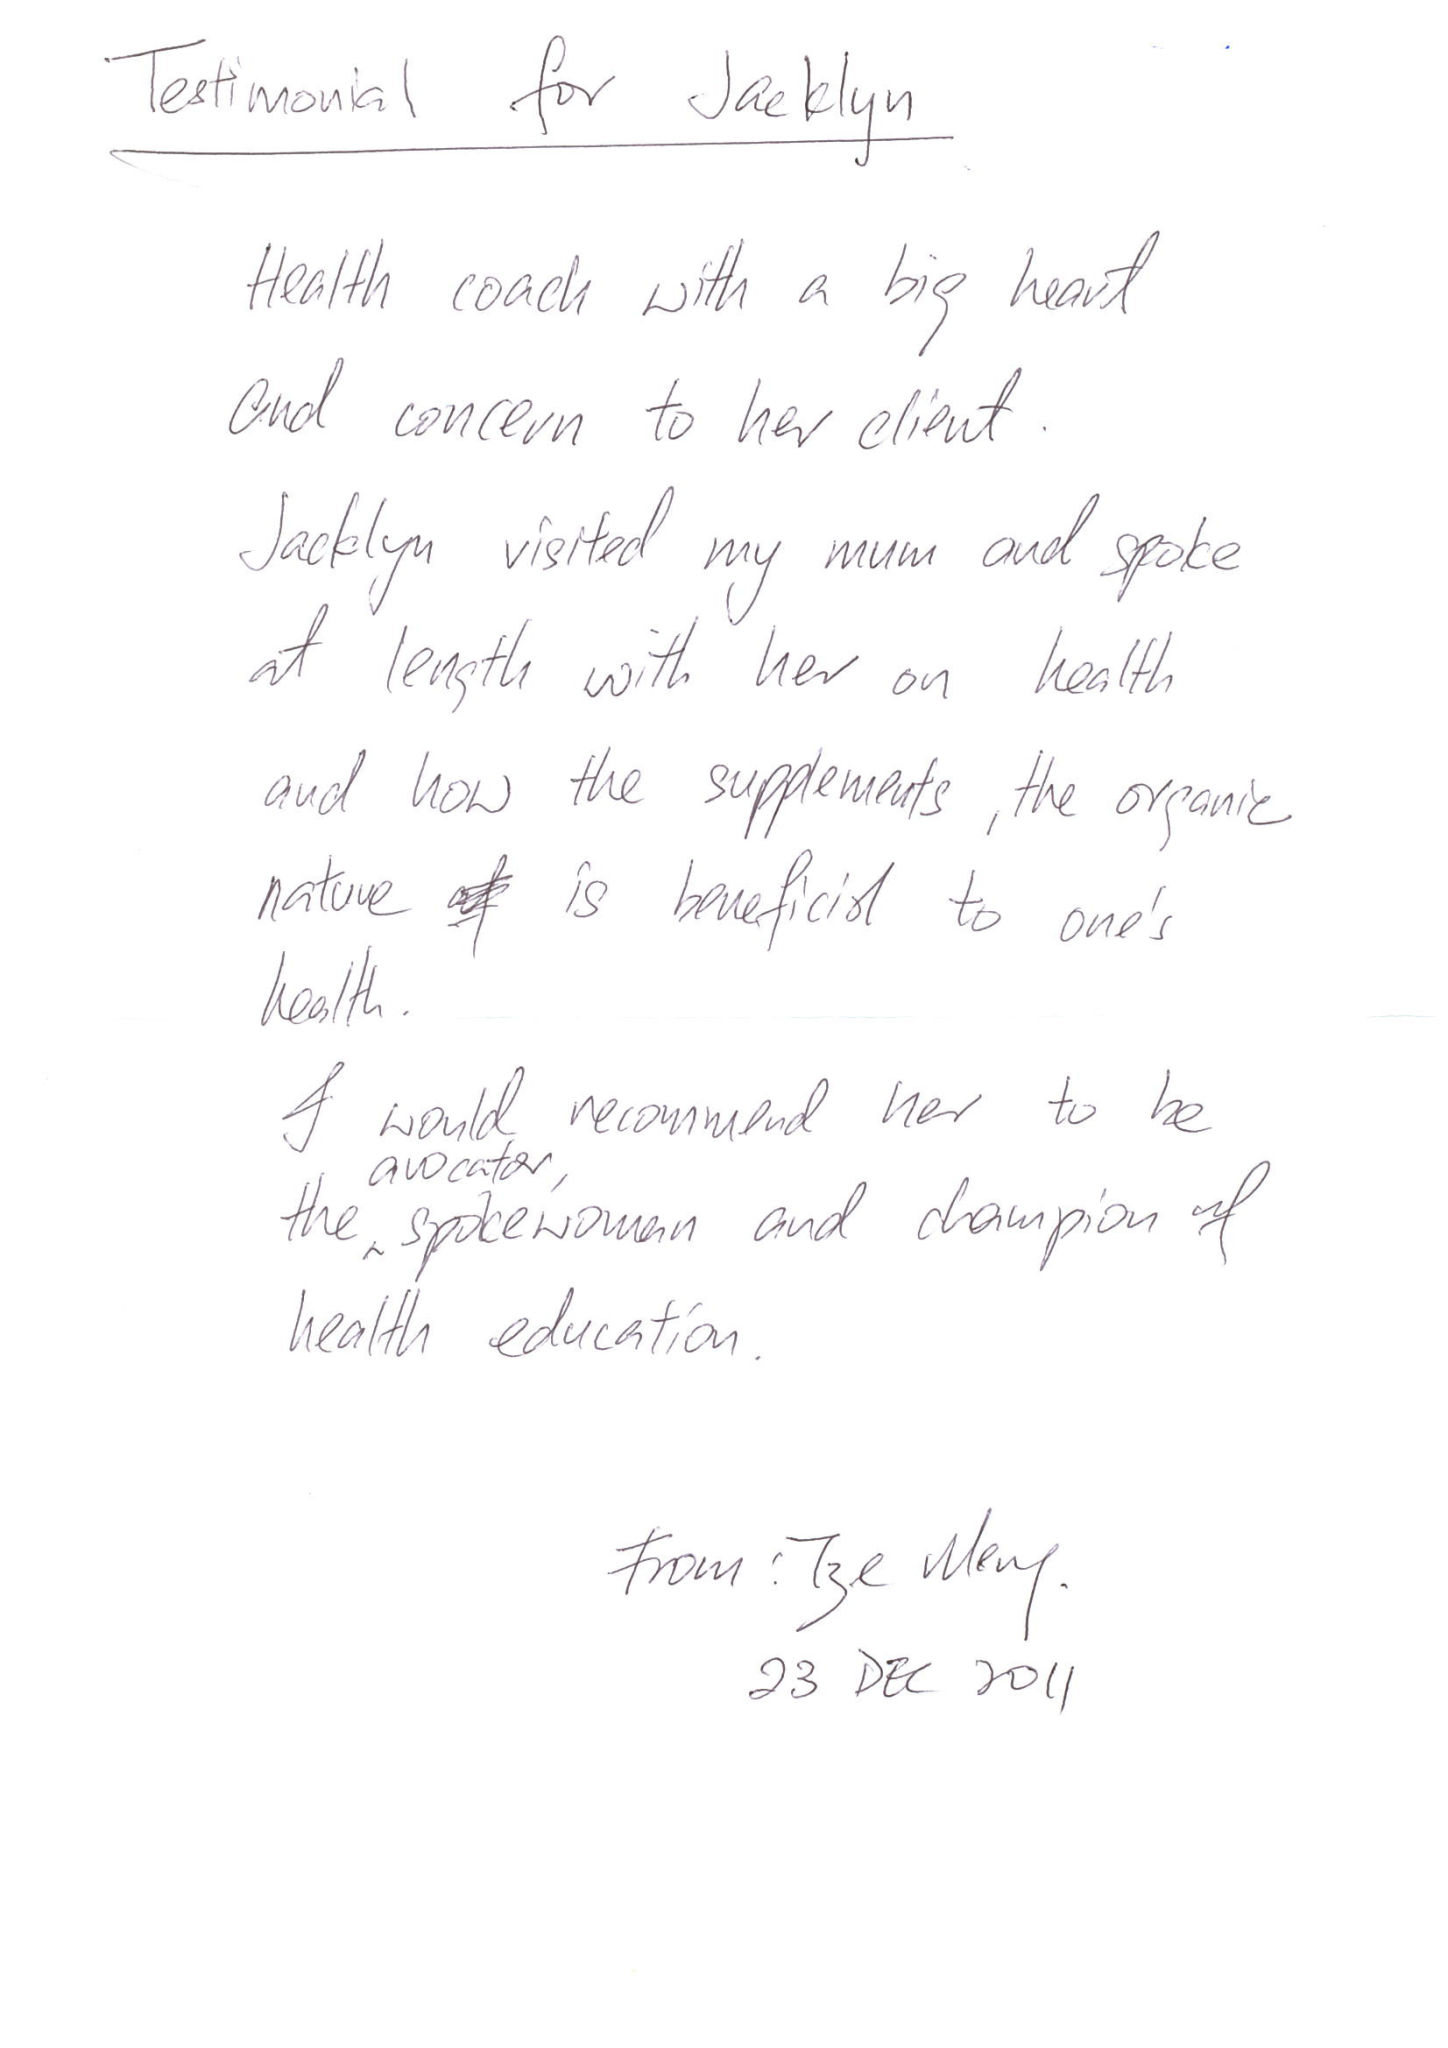 Testimonial for Jacklyn
Health coach with a big heart
and concern to her client.
Jacklyn visited my mum and spoke
at length with her on health
and how the supplements, the organic
nature is beneficial to one's
health.
I would recommend her to be
avocator,
the spokewoman and champion of
health education.
From: Tze Meng.
23 DEC 2011